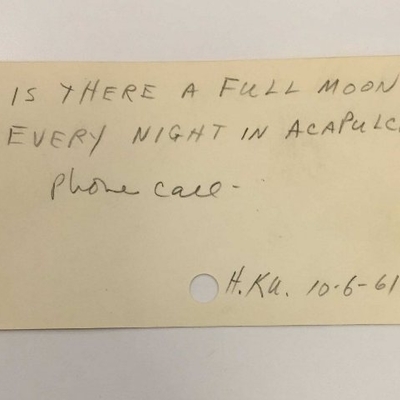 IS THERE A FULL MOON
EVERY NIGHT IN ACAPULC
phone call -
H.KU. 10-6-61